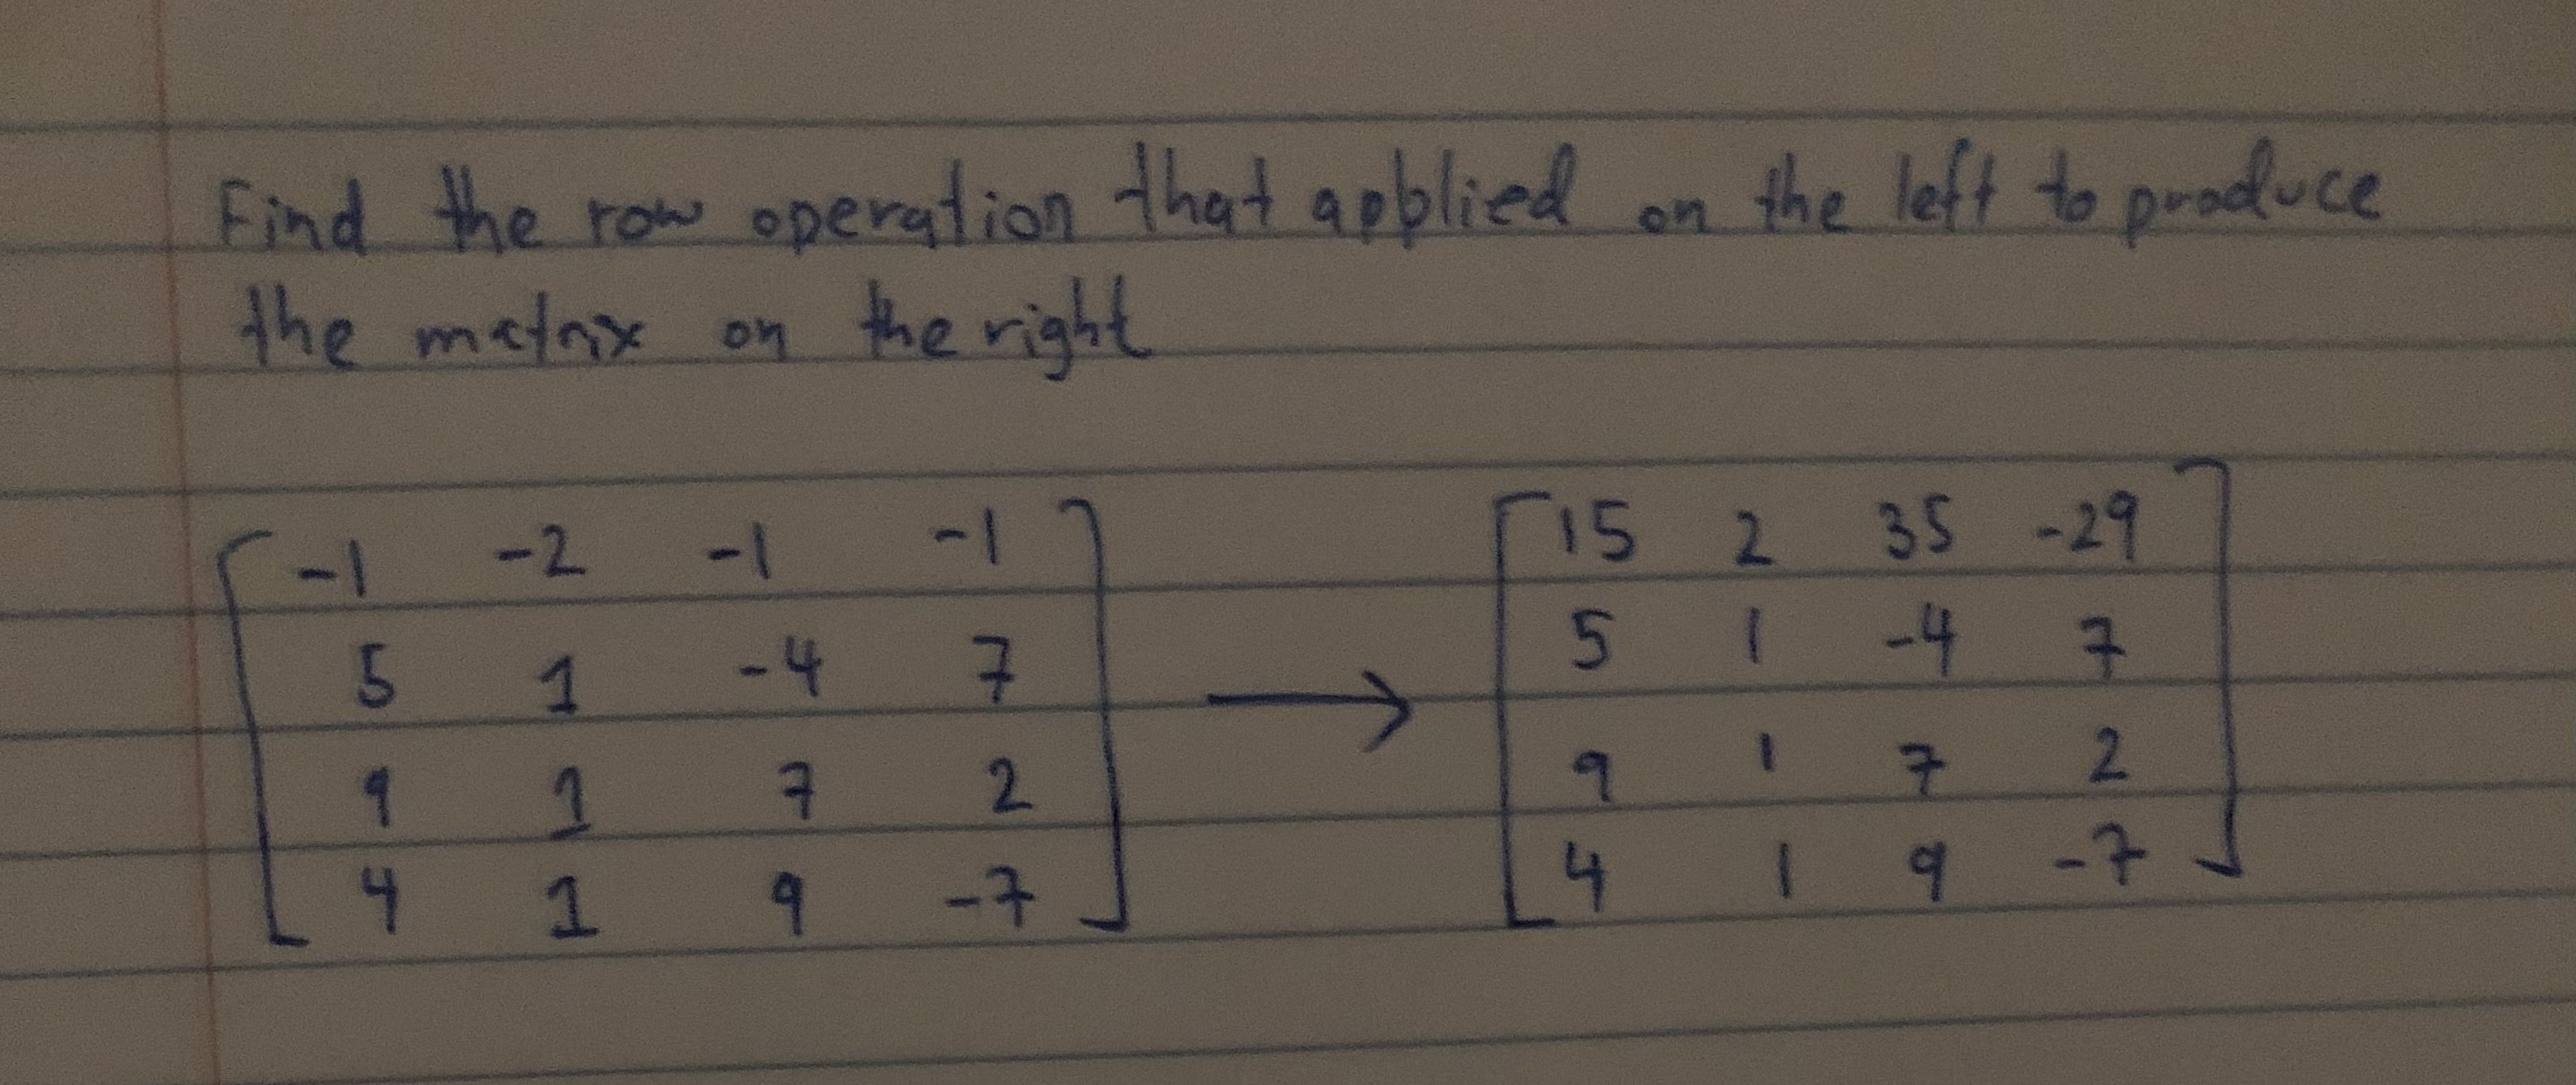 Find the row operation that applied on the left to produce
the matrix on the right
[ -1 -2 -1 -1 ] → [ 15 2 35 -29 ]
[ 5 1 -4 7 ] [ 5 1 -4 7 ]
[ 9 1 7 2 ] [ 9 1 7 2 ]
[ 4 1 9 -7 ] [ 4 1 9 -7 ]